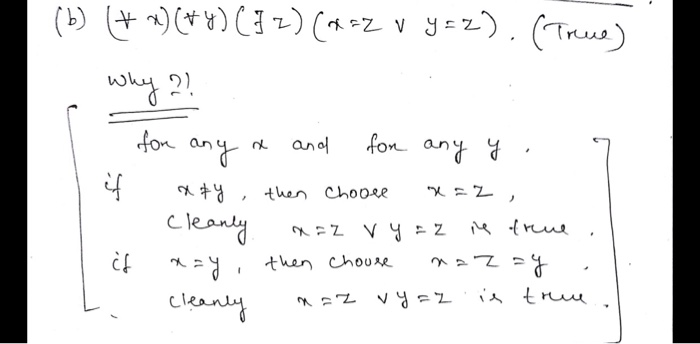 (b) (∀ x)(∀ y)(∃ z)(x=z ∨ y=z). (True)
Why ?!
for any x and for any y.
if x≠y, then choose x=z,
Clearly x=z ∨ y=z is true.
if x=y, then choose x=z=y.
Clearly x=z ∨ y=z is true.